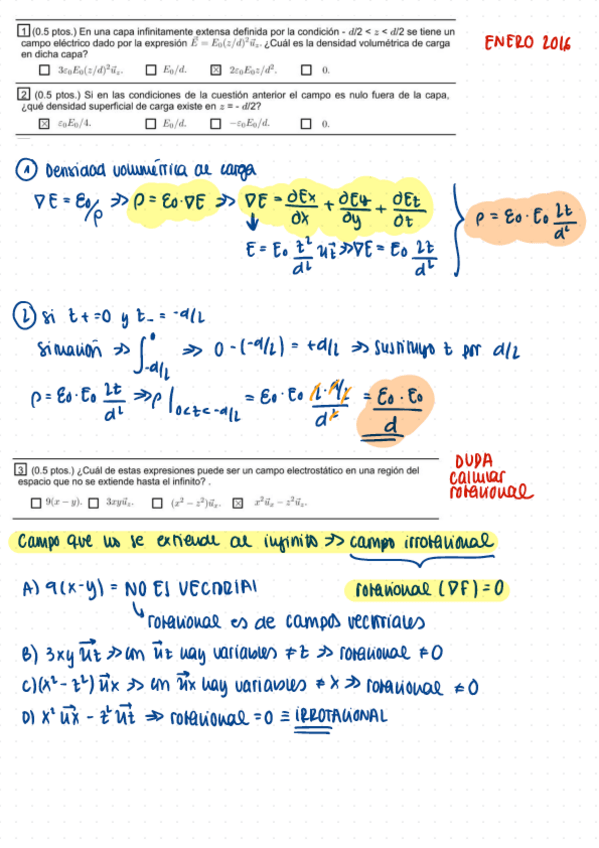 1 (0.5 ptos.) En una capa infinitamente extensa definida por la condición - d/2 < z < d/2 se tiene un
campo eléctrico dado por la expresión E⃗ = E₀(z/d)²u⃗z. ¿Cuál es la densidad volumétrica de carga
en dicha capa?
☐ 3ε₀E₀(z/d)²u⃗z. ☐ E₀/d. ☒ 2ε₀E₀z/d². ☐ 0.
ENERO 2016
2 (0.5 ptos.) Si en las condiciones de la cuestión anterior el campo es nulo fuera de la capa,
¿qué densidad superficial de carga existe en z = - d/2?
☒ ε₀E₀/4. ☐ E₀/d. ☐ −ε₀E₀/d. ☐ 0.
① Densidad volumétrica de carga
∇E = ε₀/ρ ⇒ ρ = ε₀·∇E ⇒ ∇E = ∂Ex/∂x + ∂Ey/∂y + ∂Et/∂t
E = E₀ t²/d² u⃗t ⇒ ∇E = E₀ 2t/d²
ρ = ε₀·E₀ 2t/d²
② Si t+=0 y t-=-d/2
⇒ ∫₋d/2⁰ ⇒ 0-(-d/2) = +d/2 ⇒ sustituyo t por d/2
ρ = ε₀·E₀ 2t/d² ⇒ ρ|0<t<-d/2 = ε₀·E₀ 2·d/2/d² = ε₀·E₀/d
3 (0.5 ptos.) ¿Cuál de estas expresiones puede ser un campo electrostático en una región del
espacio que no se extiende hasta el infinito? .
☐ 9(x − y). ☐ 3xyu⃗z. ☐ (x² − z²)u⃗x. ☒ x²u⃗x − z²u⃗z.
DUDA
calcular
rotacional
Campo que no se extiende al infinito ⇒ campo irrotacional
rotacional (∇F)=0
A) 9(x-y) = NO ES VECTORIAL
↳ rotacional es de campos vectoriales
B) 3xy u⃗t ⇒ en u⃗t hay variables ≠ t ⇒ rotacional ≠0
C) (x²-t²) u⃗x ⇒ en u⃗x hay variables ≠ x ⇒ rotacional ≠0
D) x² u⃗x - t² u⃗t ⇒ rotacional =0 ≡ IRROTACIONAL